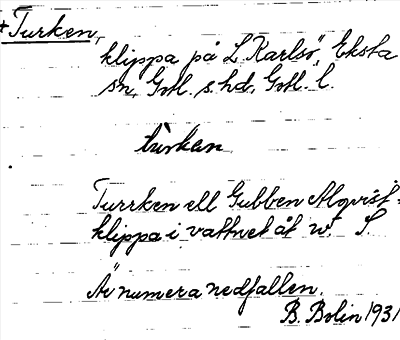 +Turken,
klippa på L. Karlsö, Eksta
sn, Gotl. s. hd, Gotl. l.
tùrken
Turrken ell Gubben Almqvist =
klippa i vattnet åt w. S.
Är numera nedfallen.
B. Bolin 1931